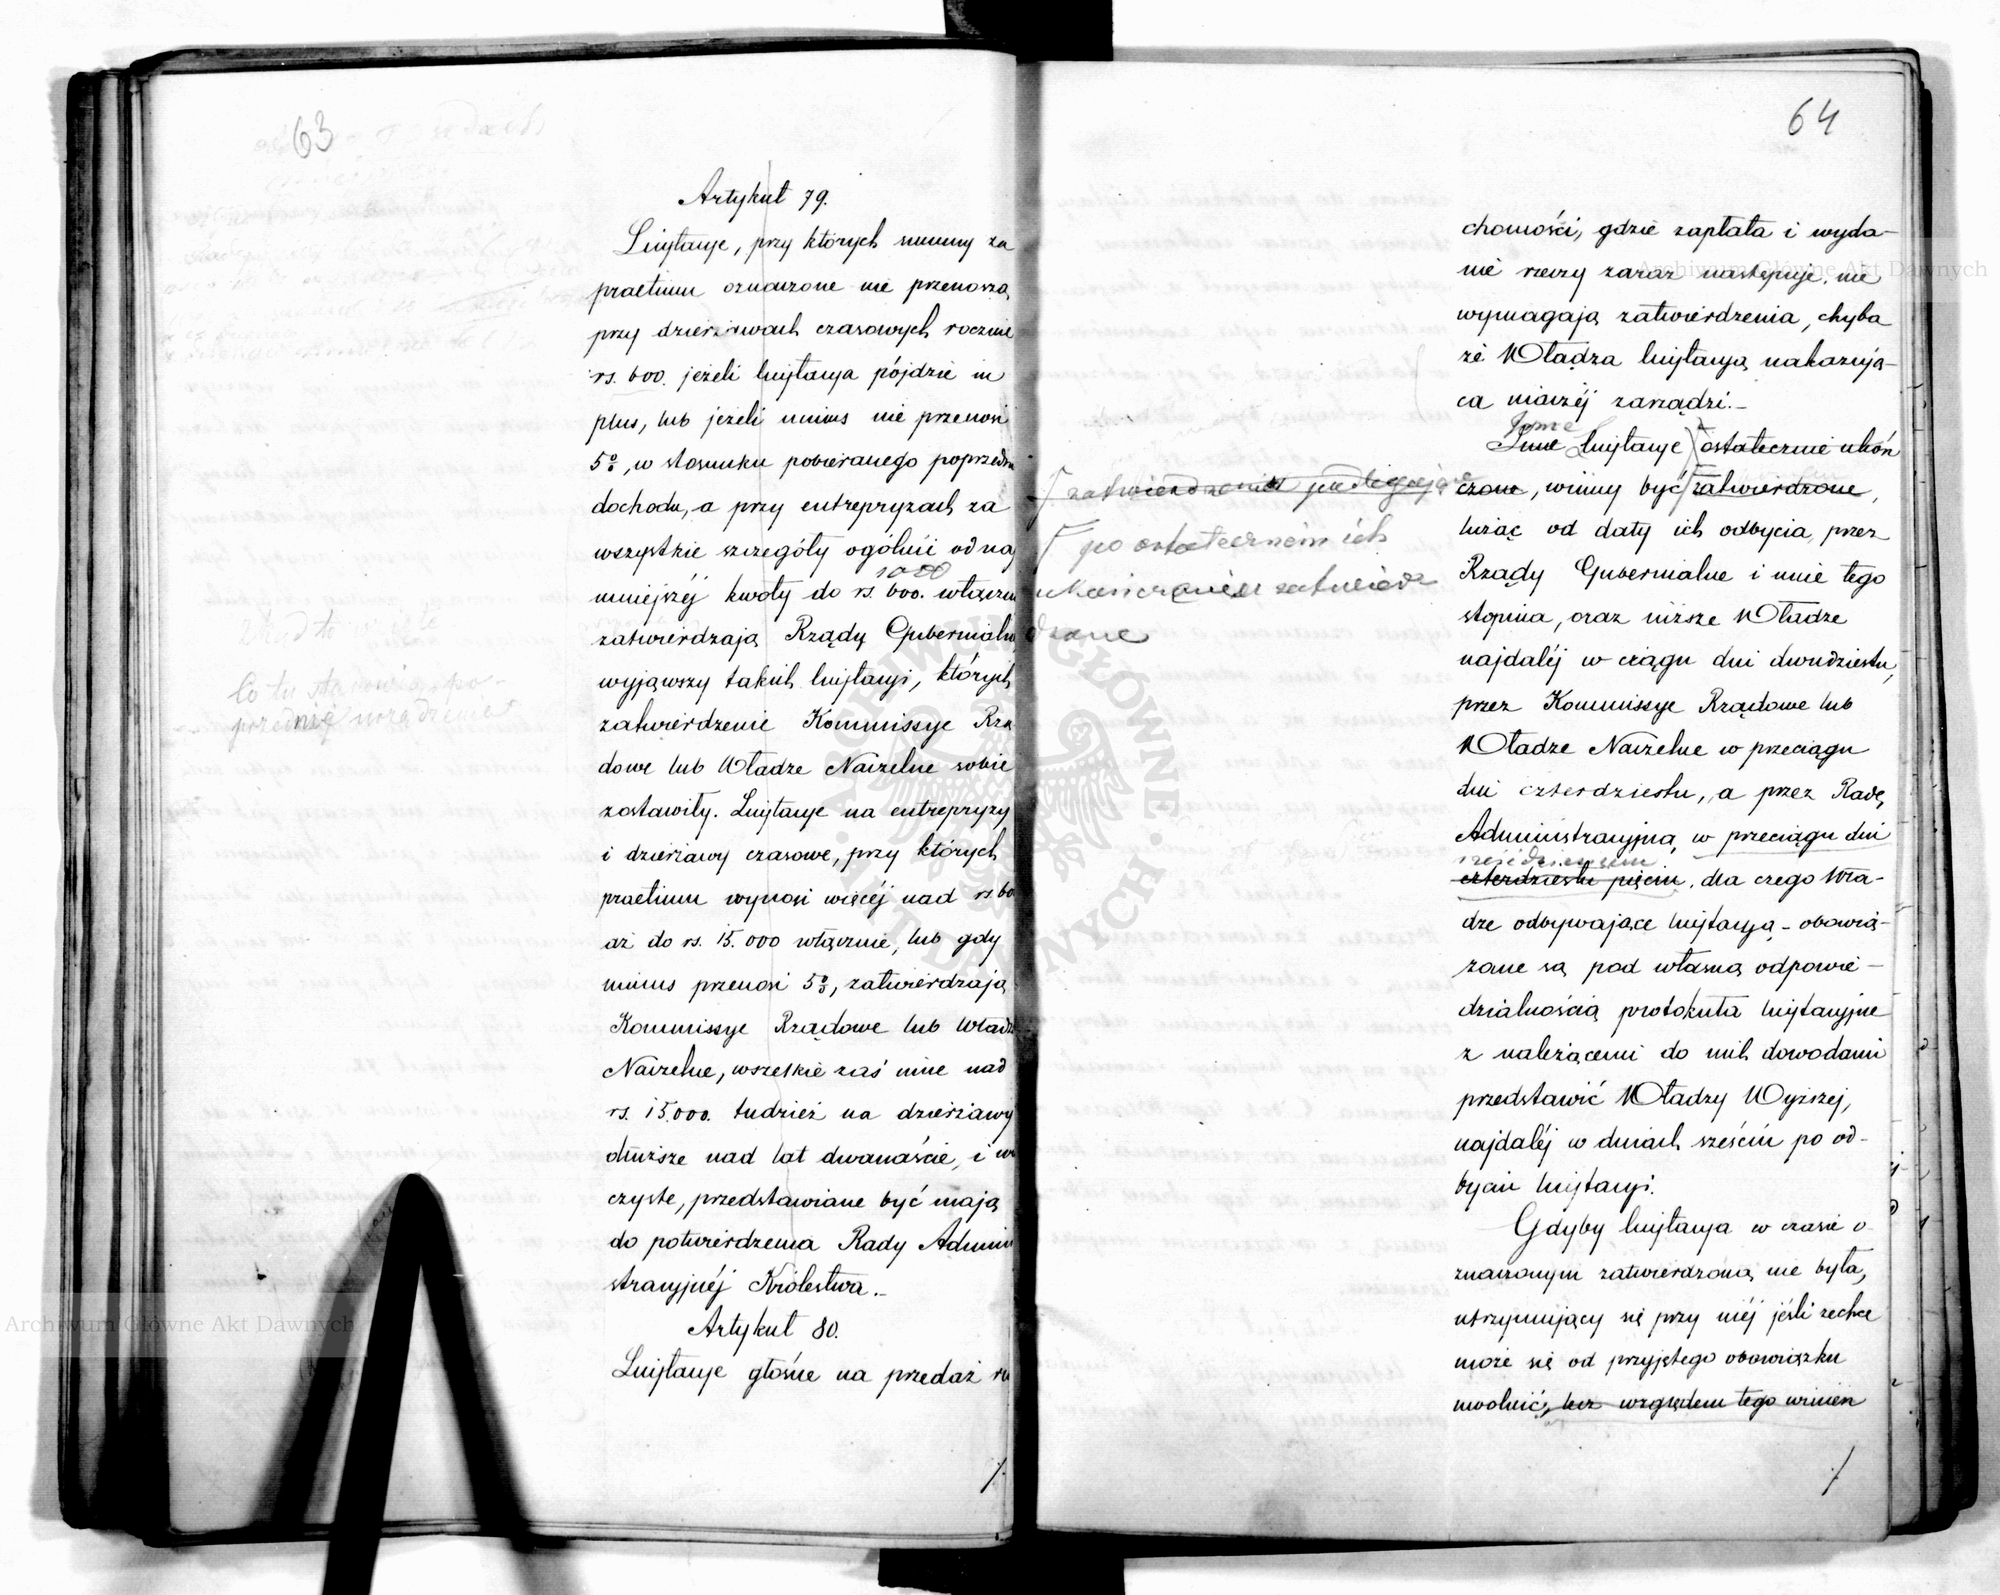 63
Artykuł 79.
Licytacye, przy których summy za
praetium oznaczone nie przenoszą
przy dzierżawach czasowych rocznie
rs. 600. jeżeli licytacya pójdzie in
plus, lub jeżeli minus nie przenosi
5%, w stosunku pobieranego poprzedn
dochodu, a przy entrepryzach za
wszystkie szczegóły ogólnéj od naj
1000
mniejszéj kwoty do rs. 600. włączn
zatwierdzają Rządy Gubernialn
wyjąwszy takich licytacyi, których
zatwierdzenie Kommissye Rzą
dowe lub Władze Naczelne sobie
zostawiły. Licytacye na entrepryzy
i dzierżawy czasowe, przy których
praetium wynosi więcéj nad rs 60
aż do rs. 15.000 włącznie, lub gdy
minus przenosi 5%, zatwierdzają
Kommissye Rządowe lub Władz
Naczelne, wszelkie zaś inne nad
rs. 15.000. tudzież na dzierżawy
dłuższe nad lat dwanaście, i wi
czyste, przedstawiane być mają
do potwierdzenia Rady Admini
stracyjnéj Królestwa.-
Artykuł 80.
Licytacye głośne na przedaż ru
Co tu stanowią po-
przednie urządzenia
64
chomości, gdzie zapłata i wyda-
nie rzeczy zaraz następuje, nie
wymagają zatwierdzenia, chyba
że Władza licytacyą nakazują-
ca inaczéj zarządzi.-
Inne
Inne licytacye ostatecznie ukoń
czone, winny być zatwierdzone,
licząc od daty ich odbycia, przez
Rządy Gubernialne i inne tego
stopnia, oraz niższe Władze
najdaléj w ciągu dni dwudziestu,
przez Kommissye Rządowe lub
Władze Naczelne w przeciągu
dni czterdziestu, a przez Radę
Administracyjną, w przeciągu dni
sześćdziesięciu
czterdziestu pięciu, dla czego Wła-
dze odbywające licytacyą - obowią-
zane są pod własną odpowie-
dzialnością protokuła licytacyjne
z należącemi do nich dowodami
przedstawić Władzy Wyższej,
najdaléj w dniach sześciu po od-
byciu licytacyi.
Gdyby licytacya w czasie o-
znaczonym zatwierdzoną nie była,
utrzymujący się przy niéj jeśli zechce
może się od przyjętego obowiązku
uwolnić, lecz względem tego winien
zatwierdzenia podlegające
po ostatecznem ich
ukończeniu zatwierdz
dzone
Archiwum Główne Akt Dawnych
Archiwum Główne Akt Dawnych
ARCHIWUM GŁÓWNE AKT DAWNYCH